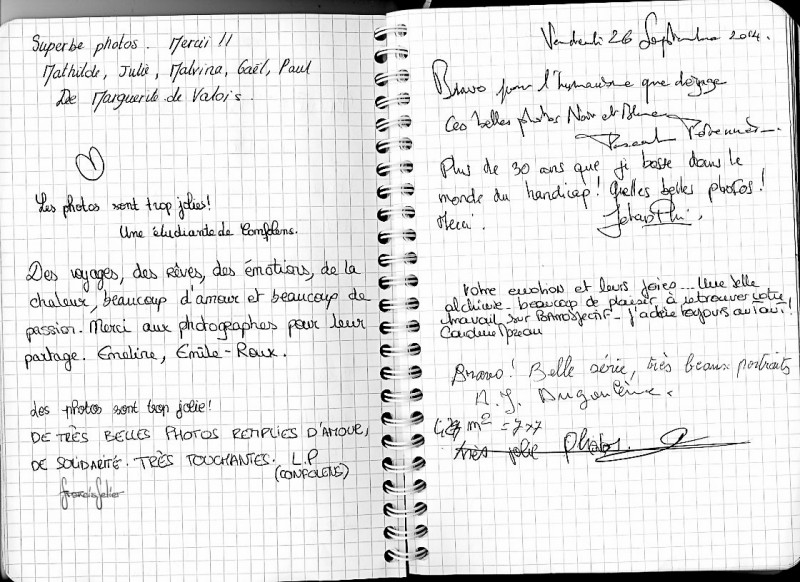 Superbe photos. Merci !!
Mathilde, Julie, Malvina, Gaël, Paul
De Marguerite de Valois.
Les photos sont trop jolies!
Une étudiante de Confolens.
Des voyages, des rêves, des émotions, de la
chaleur, beaucoup d'amour et beaucoup de
passion. Merci aux photographes pour leur
partage. Emeline, Emile-Roux.
Les photos sont trop jolie!
DE TRÈS BELLES PHOTOS REMPLIES D'AMOUR,
DE SOLIDARITÉ. TRÈS TOUCHANTES. L.P
(CONFOLENS)
Vendredi 26 Septembre 2014.
Bravo pour l'humanisme que dégage
Ces belles photos Noir et Blanc
Pascal
Plus de 30 ans que je bosse dans le
monde du handicap! Quelles belles photos!
Merci.
Votre émotion et leurs joies... Une belle
alchimie. beaucoup de plaisir à retrouver votre
travail sur Barrobjectif - j'adore toujours autant!
Caroline
Bravo! Belle série, très beaux portraits
A.J. Angoulême.
m² = 7x7
très jolie photos